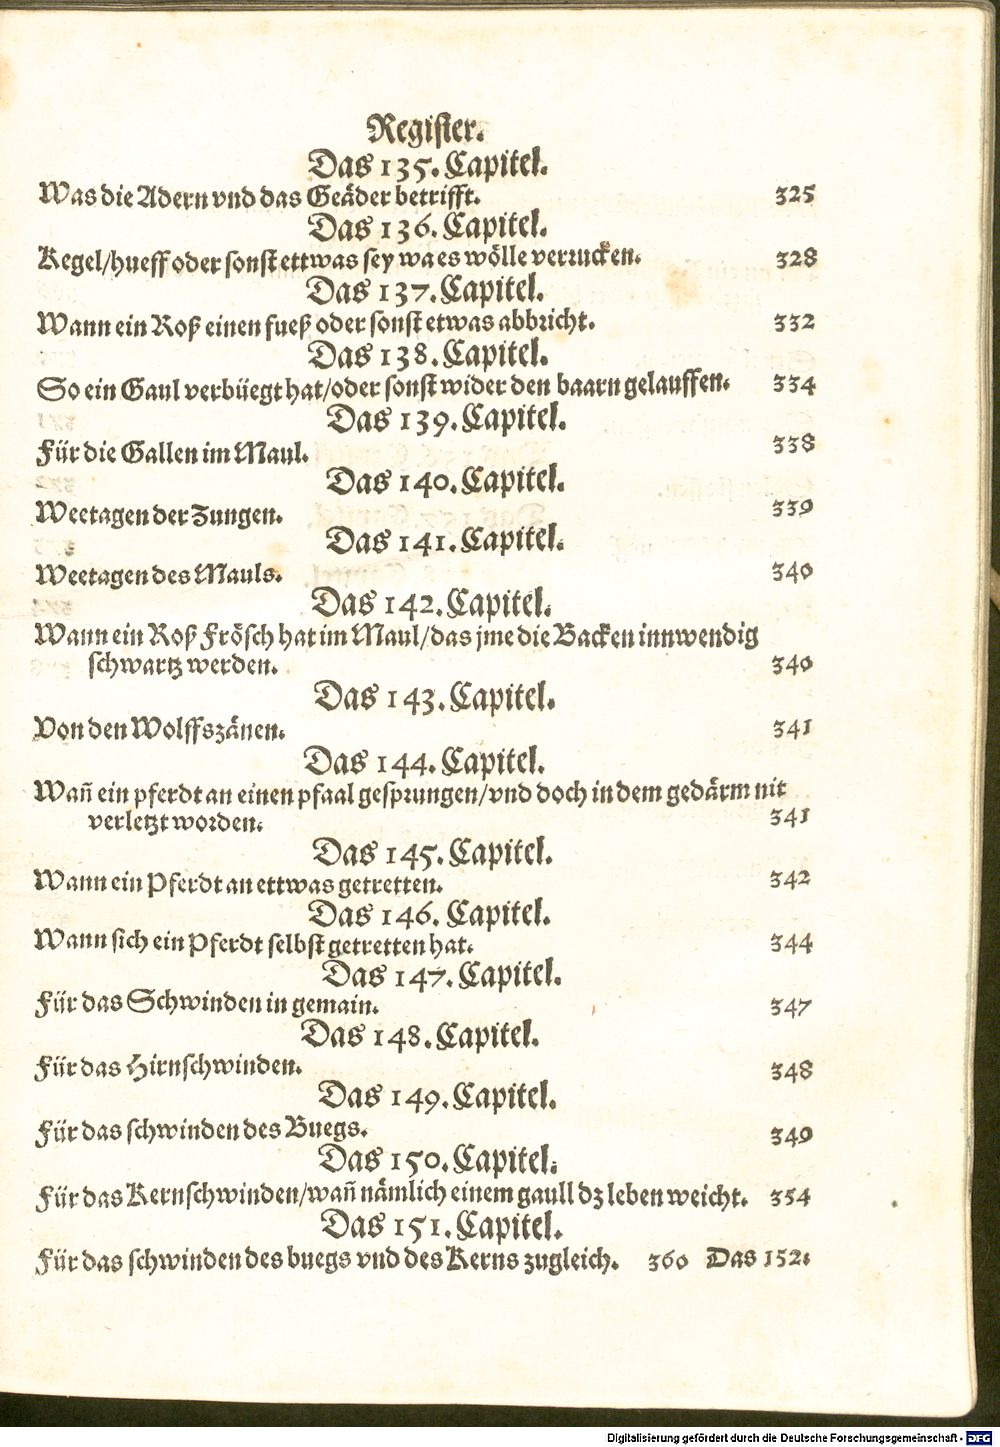 Register.
Das 135. Capitel.
Was die Adern vnd das Geäder betrifft. 325
Das 136. Capitel.
Kegel/hueff oder sonst ettwas sey wa es wölle verrucken. 328
Das 137. Capitel.
Wann ein Roß einen fueß oder sonst etwas abbricht. 332
Das 138. Capitel.
So ein Gaul verbüegt hat/oder sonst wider den baarn gelauffen. 334
Das 139. Capitel.
Für die Gallen im Maul. 338
Das 140. Capitel.
Weetagen der Zungen. 339
Das 141. Capitel.
Weetagen des Mauls. 340
Das 142. Capitel.
Wann ein Roß Frösch hat im Maul/das jme die Backen innwendig
schwartz werden. 340
Das 143. Capitel.
Von den Wolffszänen. 341
Das 144. Capitel.
Wañ ein pferdt an einen pfaal gesprungen/vnd doch in dem gedärm nit
verletzt worden. 341
Das 145. Capitel.
Wann ein Pferdt an ettwas getretten. 342
Das 146. Capitel.
Wann sich ein Pferdt selbst getretten hat. 344
Das 147. Capitel.
Für das Schwinden in gemain. 347
Das 148. Capitel.
Für das Hirnschwinden. 348
Das 149. Capitel.
Für das schwinden des Buegs. 349
Das 150. Capitel.
Für das Kernschwinden/wañ nämlich einem gaull dz leben weicht. 354
Das 151. Capitel.
Für das schwinden des buegs vnd des Kerns zugleich. 360 Das 152.
Digitalisierung gefördert durch die Deutsche Forschungsgemeinschaft - DFG